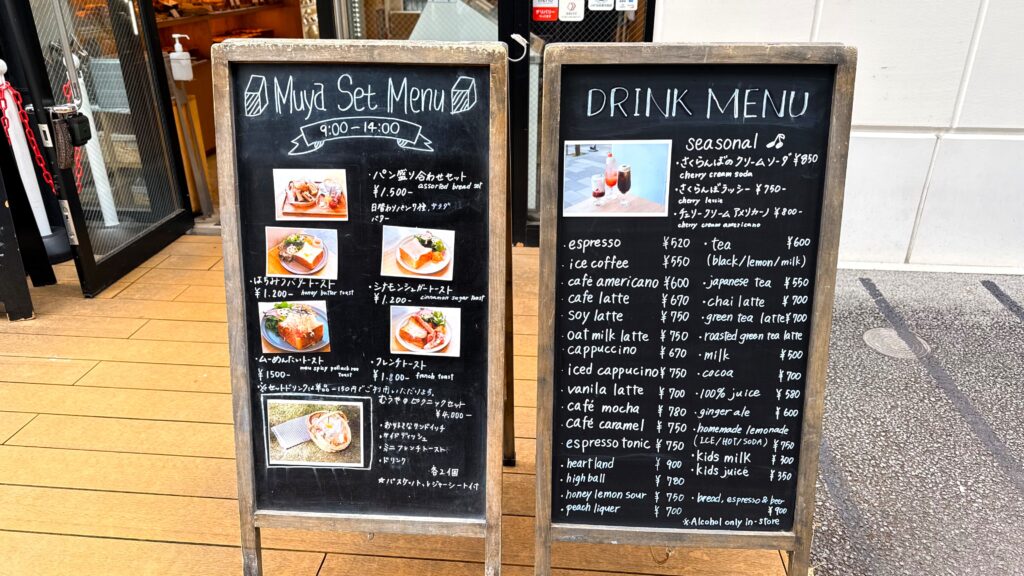 Muya Set Menu
9:00-14:00
・パン盛り合わせセット
¥1,500- assorted bread set
日替わりパン7種、サラダ
バター
・はちみつバタートースト
¥1,200- honey butter toast
・シナモンシュガートースト
¥1,200- cinnamon sugar toast
・むーめんたいトースト
¥1500-
・フレンチトースト
¥1,800- french toast
※セットドリンクは単品-150円でご利用いただけます。
むうやピクニックセット
¥4,000-
・おまかせサンドイッチ
・サイドディッシュ
・ミニフレンチトースト
・ドリンク
各2個
*バスケット、レジャーシート付
DRINK MENU
seasonal
・さくらんぼのクリームソーダ ¥850
cherry cream soda
・さくらんぼラッシー ¥750-
cherry lassie
・チェリークリームアメリカーノ ¥800-
cherry cream americano
・espresso ¥520
・ice coffee ¥550
・cafe americano ¥600
・cafe latte ¥670
・soy latte ¥750
・oat milk latte ¥750
・cappuccino ¥670
・iced cappucino ¥750
・vanilla latte ¥700
・café mocha ¥780
・café caramel ¥750
・espresso tonic ¥750
・heartland ¥900
・high ball ¥780
・honey lemon sour ¥750
・peach liquer ¥700
・tea ¥600
(black/lemon/milk)
・japanese tea ¥550
・chai latte ¥700
・green tea latte ¥700
・roasted green tea latte
・milk ¥500
・cocoa ¥700
・100% juice ¥580
・ginger ale ¥600
・homemade lemonade
(ICE/HOT/SODA) ¥750
・kids milk ¥300
・kids juice ¥350
・bread, espresso & beer
¥900
*Alcohol only in-store